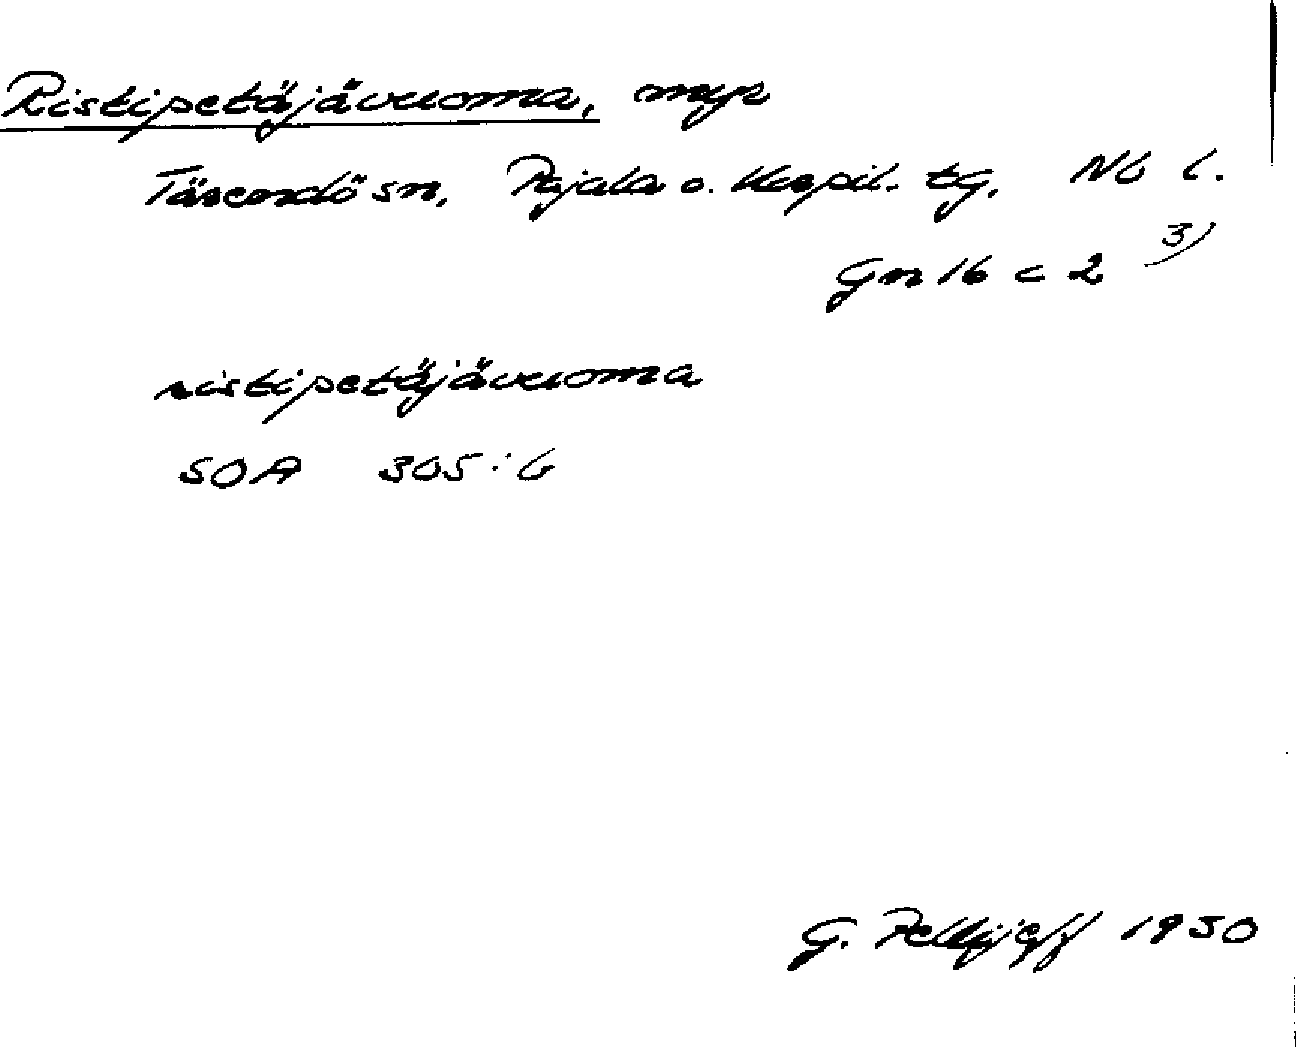 Ristipetäjävuoma, myr
Tärendö sn, Pajala o. Korpil. tg, Nb l.
Gn 16 c 2 3)
ristipetäjävuoma
SOA 305:6
G. Pellijeff 1950